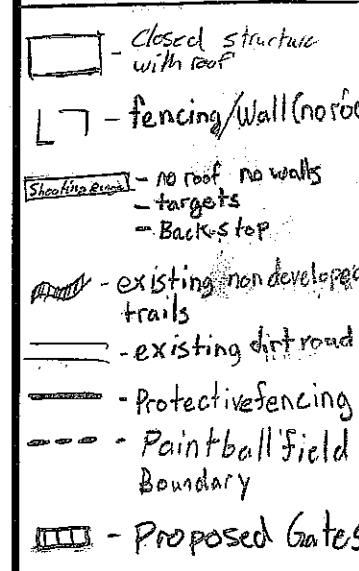 - Closed structure
with roof
- fencing/Wall (no
Shooting
- no roof no walls
- targets
- Back-stop
- existing non developed
trails
- existing dirt road
- Protective fencing
- Paintball field
Boundary
- Proposed Gates